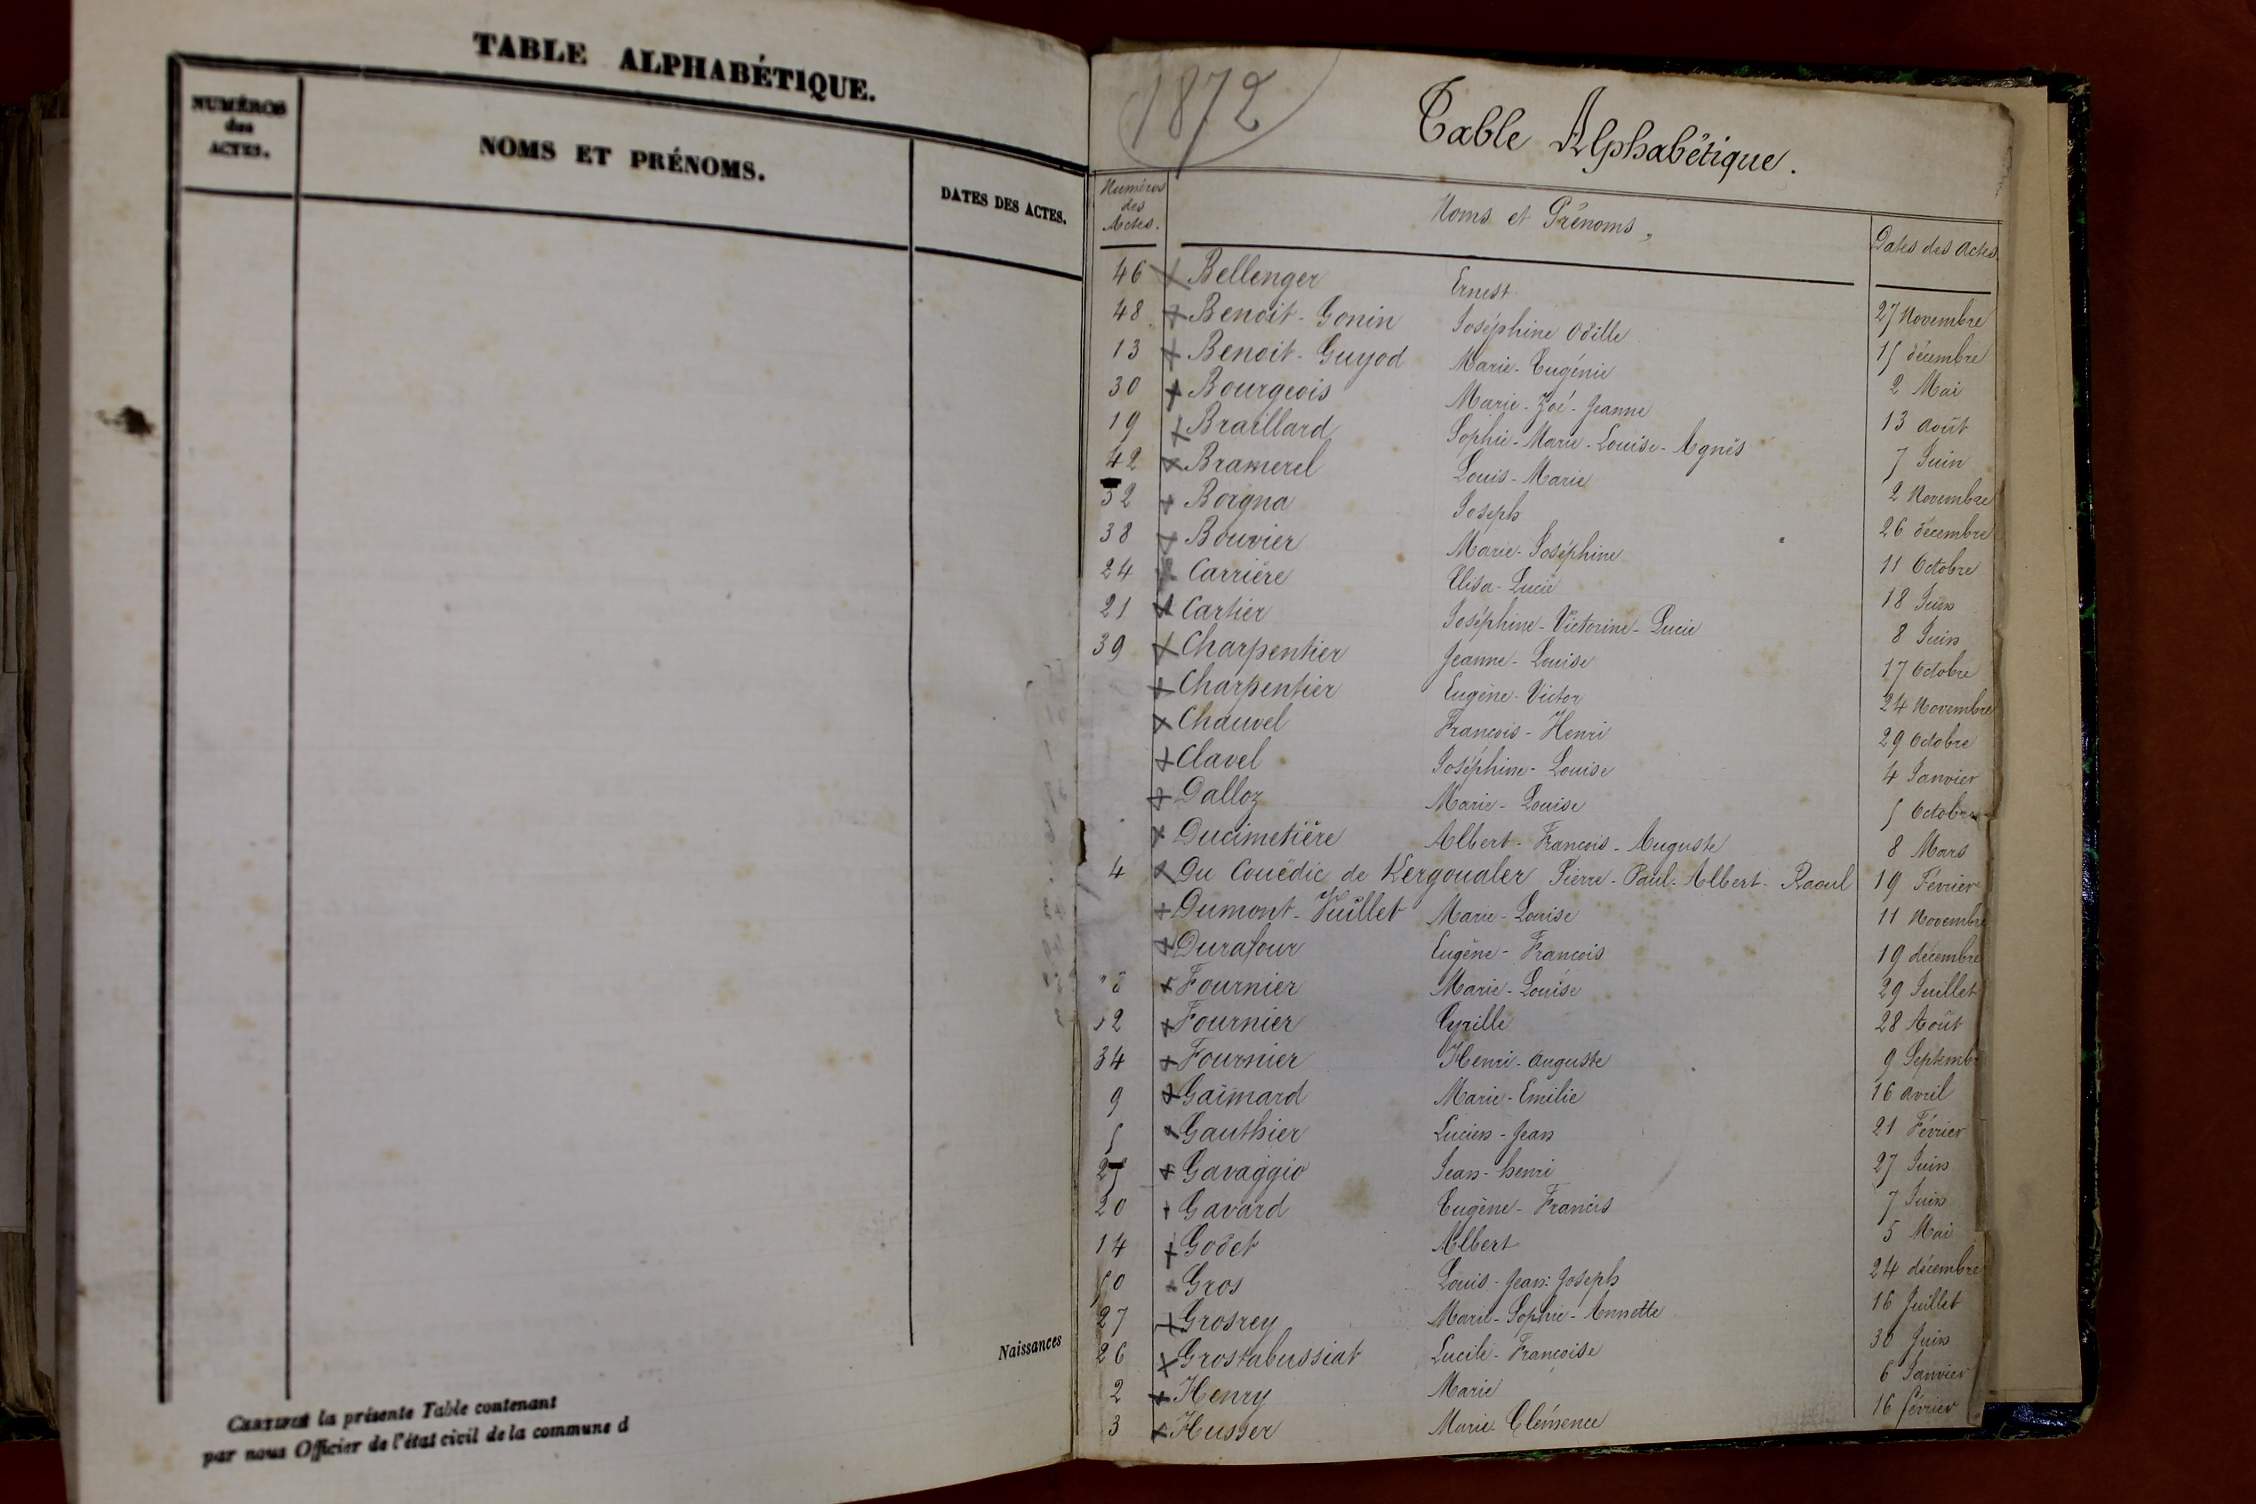 TABLE ALPHABÉTIQUE.
NUMÉROS
des
ACTES.
NOMS ET PRÉNOMS.
DATES DES ACTES.
Naissances
CERTIFIÉ la présente Table contenant
par nous Officier de l'état civil de la commune d
1872
Table Alphabétique.
Numéros
des
Actes.
Noms et Prénoms,
Dates des actes.
46 Bellenger Ernest 27 Novembre
48 Benoit-Gonin Joséphine Odille 15 décembre
13 Benoit-Guyod Marie-Eugénie 2 Mai
30 Bourgeois Marie-Zoé-Jeanne 13 août
19 Braillard Sophie-Marie-Louise-Agnès 7 Juin
42 Bramerel Louis-Marie 2 Novembre
52 Borgna Joseph 26 décembre
38 Bouvier Marie-Joséphine 11 Octobre
24 Carrière Elisa-Lucie 18 Juin
21 Cartier Joséphine-Victorine-Lucie 8 Juin
39 Charpentier Jeanne-Louise 17 Octobre
Charpentier Eugène-Victor 24 Novembre
Chauvel François-Henri 29 Octobre
Clavel Joséphine-Louise 4 Janvier
Dalloz Marie-Louise 5 Octobre
Ducimetière Albert-François-Auguste 8 Mars
4 Du Couëdic de Kergoualer Pierre-Paul-Albert-Raoul 19 Février
Dumont-Vuillet Marie-Louise 11 Novembre
Durafour Eugène-François 19 décembre
Fournier Marie-Louise 29 Juillet
Fournier Cyrille 28 Août
34 Fournier Henri-auguste 9 Septemb
9 Gaimard Marie-Emilie 16 avril
5 Gauthier Lucien-Jean 21 Février
Gavaggio Jean-henri 27 Juin
20 Gavard Eugène-Francis 7 Juin
14 Godet Albert 5 Mai
50 Gros Louis-Jean-Joseph 24 décembre
27 Grosrey Marie-Sophie-Annette 16 Juillet
26 Grostabussiat Lucile-Françoise 30 Juin
2 Henry Marie 6 Janvier
3 Husser Marie-Clémence 16 février